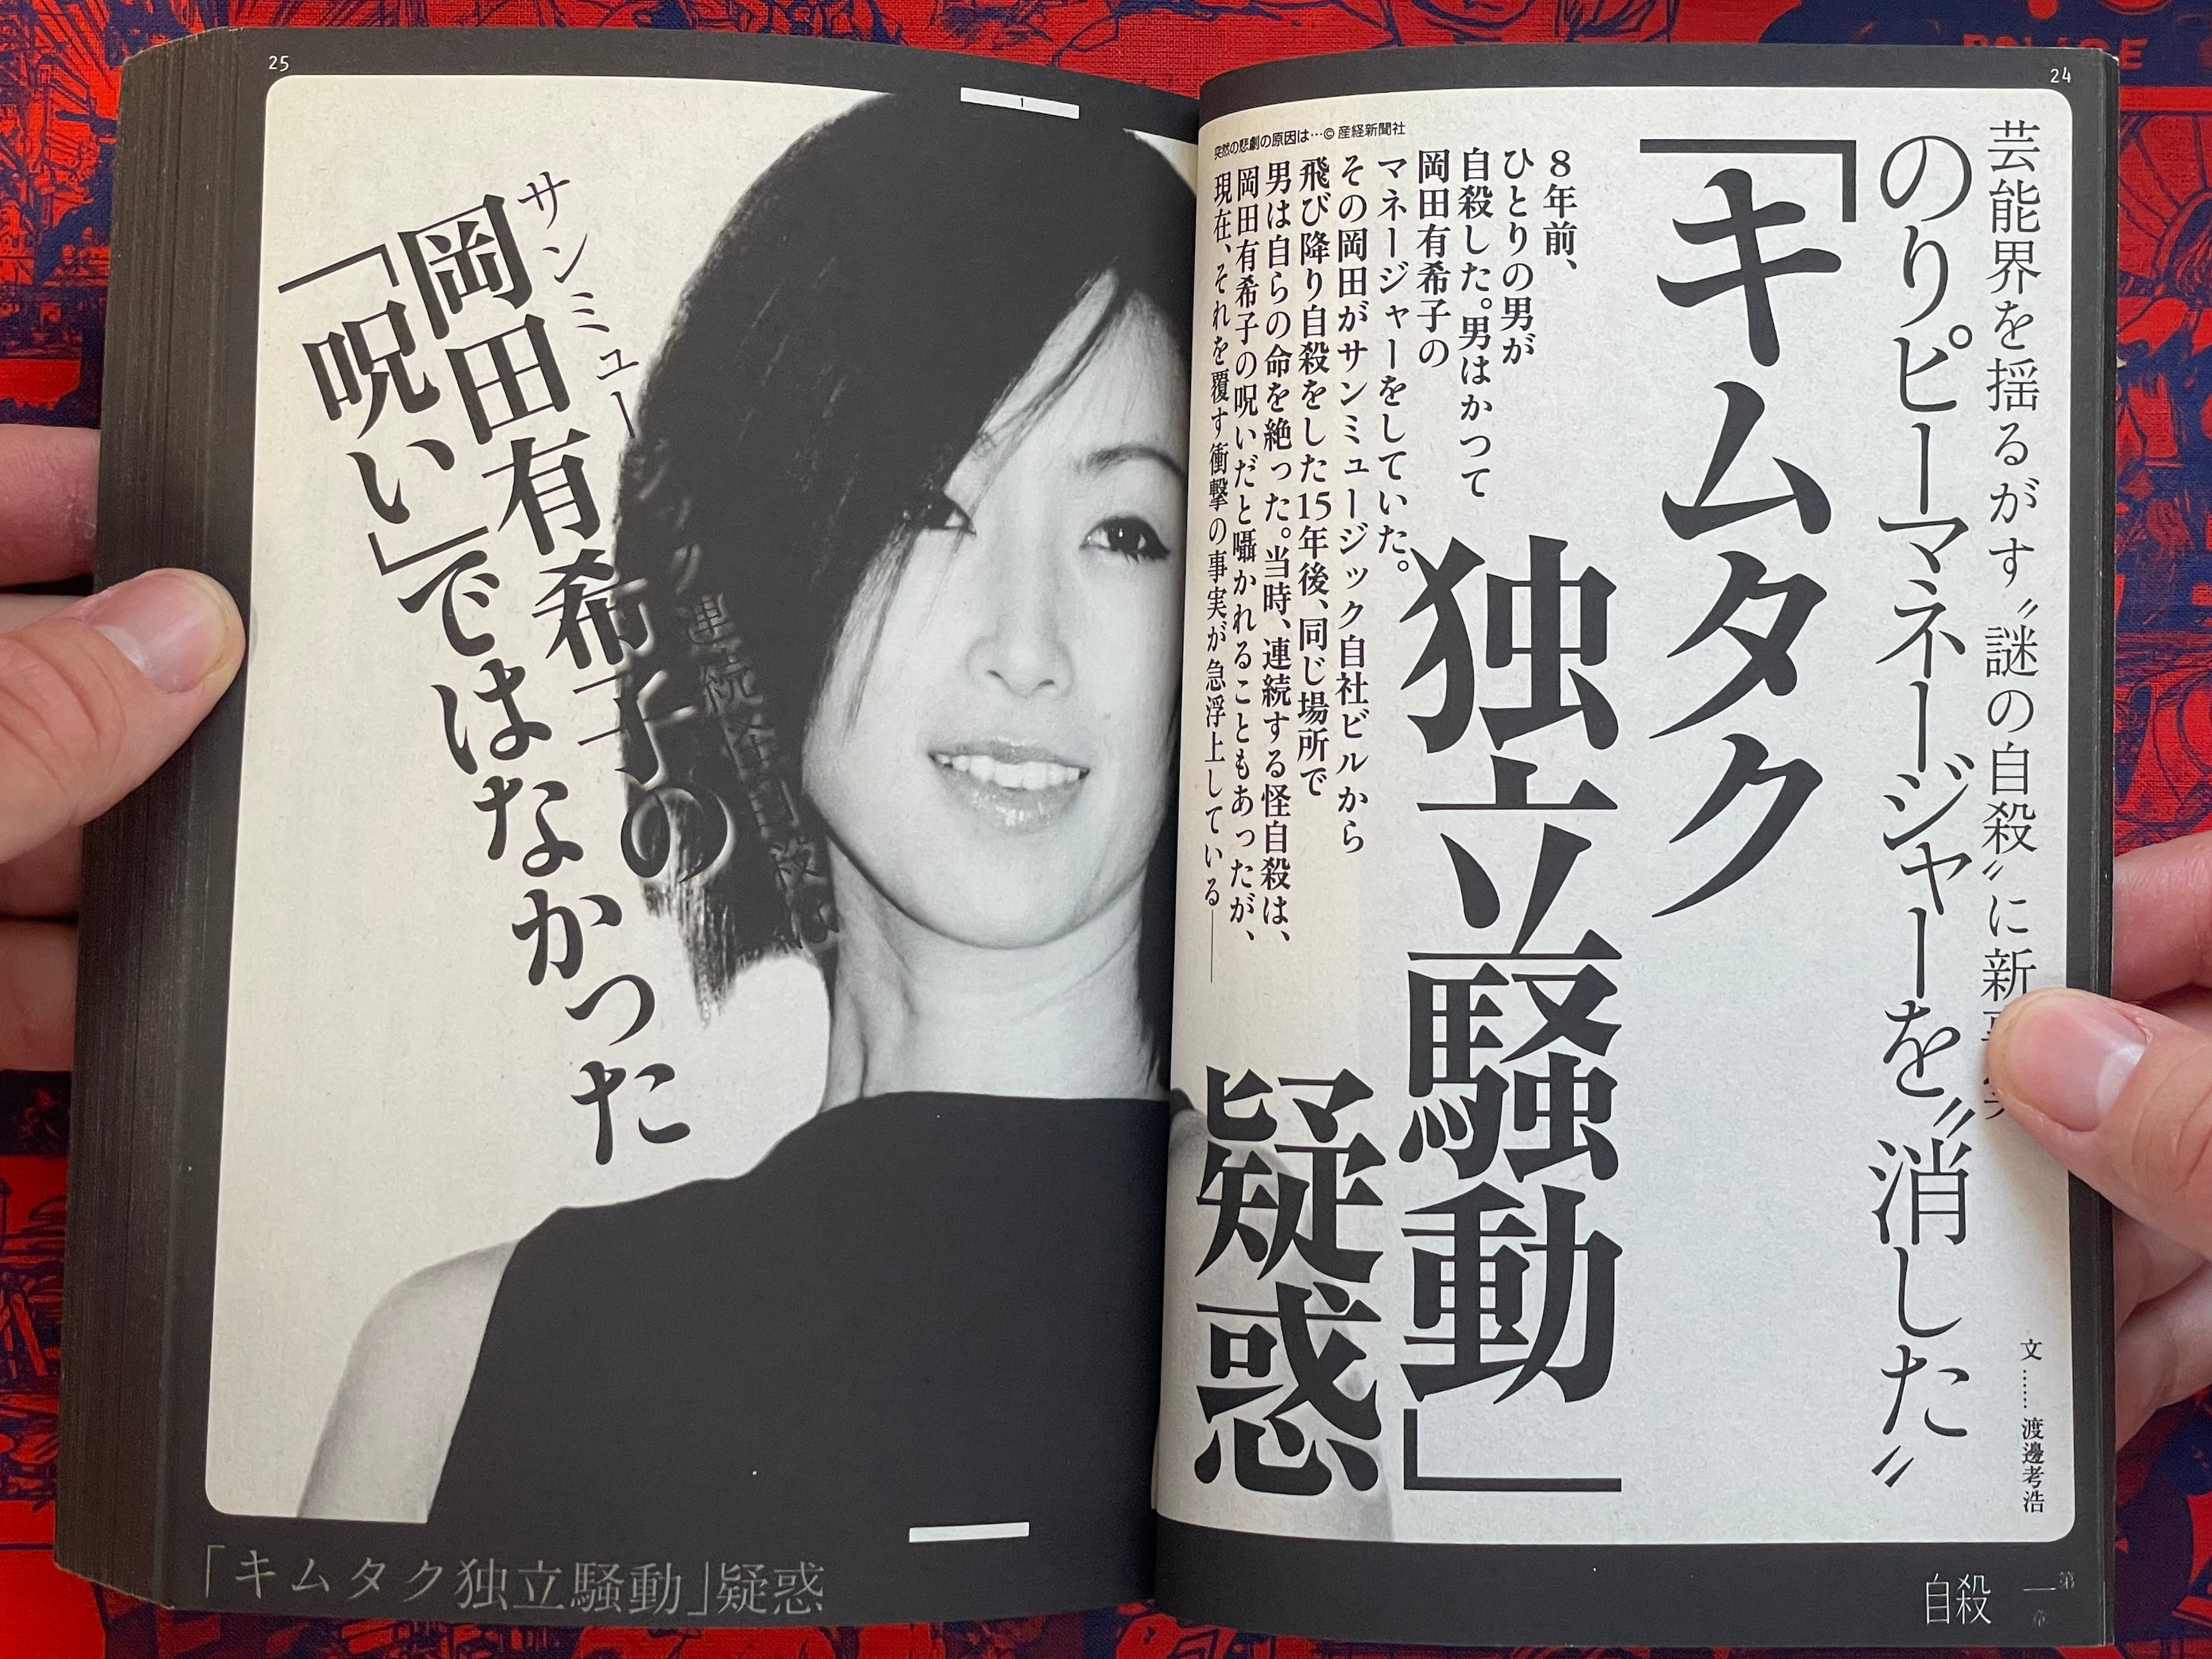 24
芸能界を揺るがす〝謎の自殺〟に新
のりピーマネージャーを〝消した〟
文……渡邊考浩
「キムタク
独立騒動」
疑惑
8年前、
ひとりの男が
自殺した。男はかつて
岡田有希子の
マネージャーをしていた。
その岡田がサンミュージック自社ビルから
飛び降り自殺をした15年後、同じ場所で
男は自らの命を絶った。当時、連続する怪自殺は、
岡田有希子の呪いだと囁かれることもあったが、
現在、それを覆す衝撃の事実が急浮上している——
突然の悲劇の原因は…©産経新聞社
自殺
第一章
25
1
サンミュージック連続怪自殺は
岡田有希子の
「呪い」ではなかった
「キムタク独立騒動」疑惑